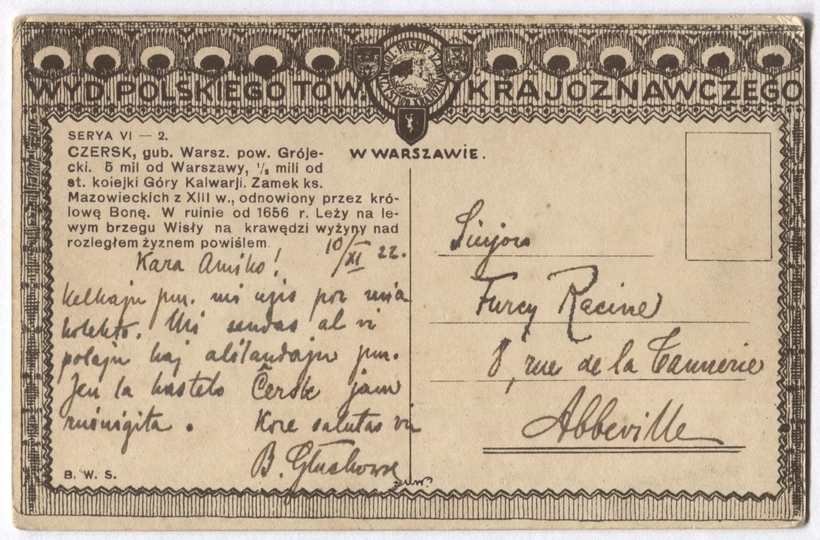 WYD. POLSKIEGO TOW. KRAJOZNAWCZEGO
W WARSZAWIE.
SERYA VI — 2.
CZERSK, gub. Warsz. pow. Gróje-
cki. 5 mil od Warszawy, ½ mili od
st. kolejki Góry Kalwarji. Zamek ks.
Mazowieckich z XIII w., odnowiony przez kró-
lowę Bonę. W ruinie od 1656 r. Leży na le-
wym brzegu Wisły na krawędzi wyżyny nad
rozległem żyznem powiślem.
10/XI 22.
Kara Amiko!
Kelkajn pm. mi uzis por mia
kolekto. Mi sendas al vi
polajn kaj alilandajn pm.
Jen la kastelo Ĉersk jam
ruiniĝita. Kore salutas vin
B.
B. W. S.
Sinjoro
Furcy Racine
8, rue de la Tannerie
Abbeville